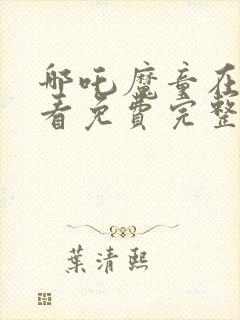 哪吒魔童在
看免费完整
葉清熙